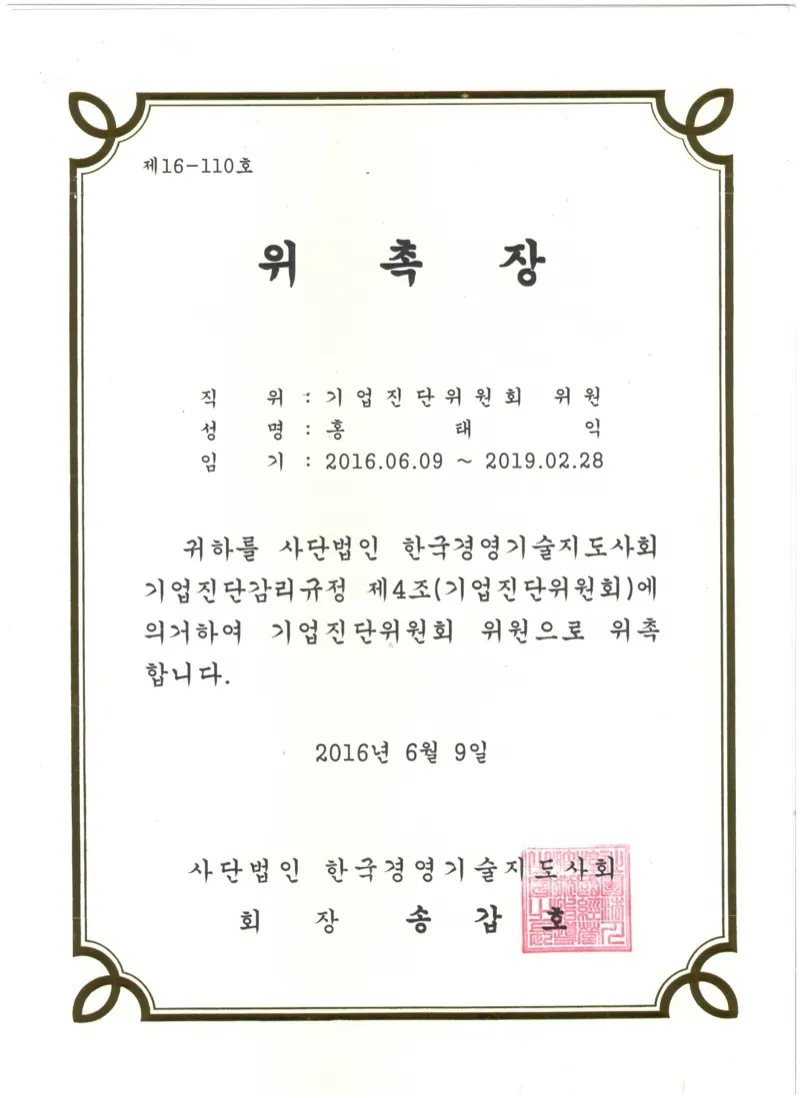 제16-110호
위 촉 장
직 위 : 기업진단위원회 위원
성 명 : 홍 태 익
임 기 : 2016.06.09 ~ 2019.02.28
귀하를 사단법인 한국경영기술지도사회
기업진단감리규정 제4조(기업진단위원회)에
의거하여 기업진단위원회 위원으로 위촉
합니다.
2016년 6월 9일
사단법인 한국경영기술지도사회
회 장 송 갑 호